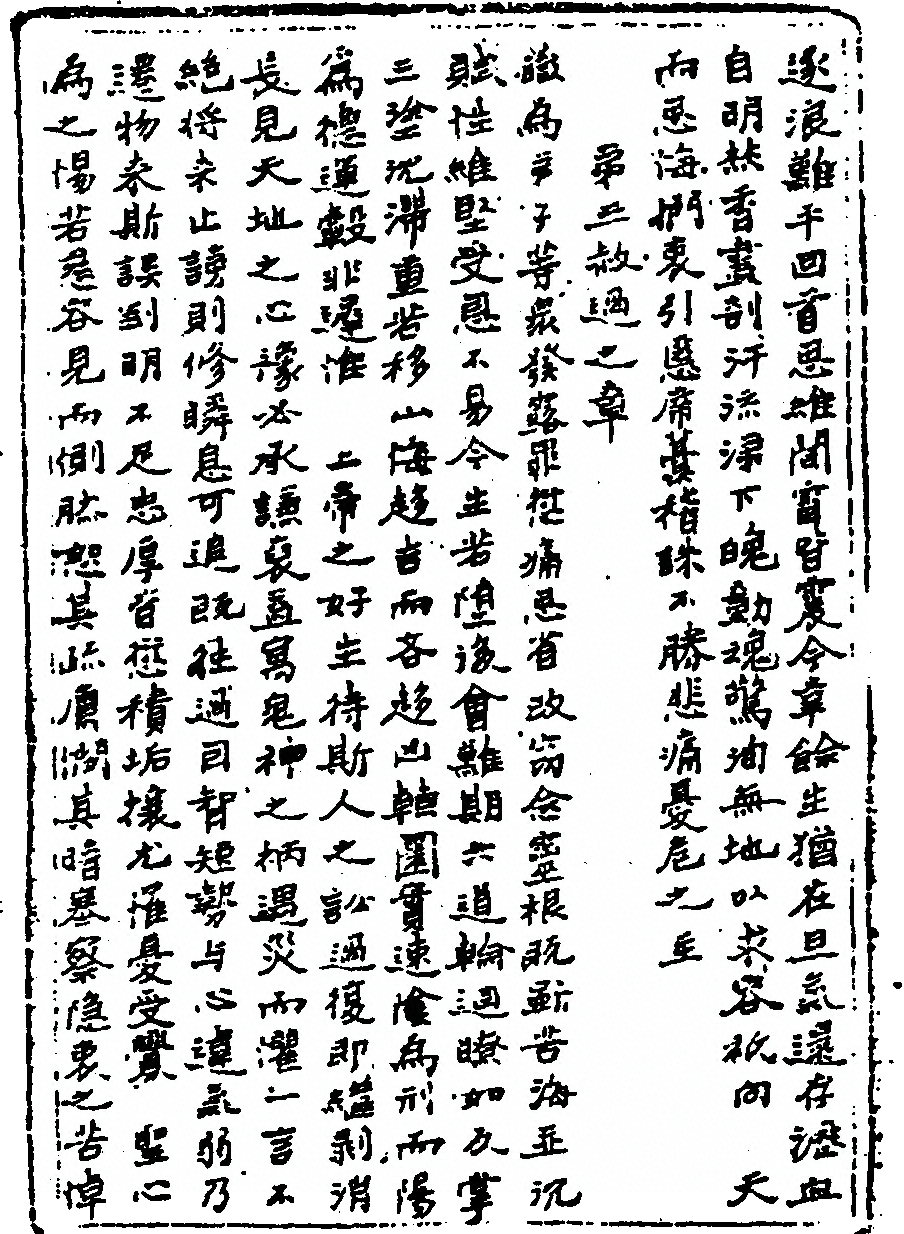 逐浪難平回首思維閧實皆震今幸餘生猶在旦氣還存瀝血
自明熱香畫剖汗流淚下魄動魂驚洵無地以求容祇向 天
而恩海捫衷引慝席藁稽誅不勝悲痛憂危之至
第三赦過之章
誠為弟子等衆發露罪愆痛思省改窃念靈根既斷苦海亚沉
賦性維堅受恩不易今生若墮後會難期六道輪迴瞭如反掌
三塗沉滞重若移山海趨吉而各趨凶轉圜貫速陰為刑而陽
爲德運轂非遲惟 上帝之好生待斯人之訟過復即繼剥消
長見天地之心豫必承謙裒益寓鬼神之柄遇災而懼一言不
絶将来止謗則修瞬息可追既往過曰智短勢与心違氣弱乃
遷物来斯誤剖明不足忠厚昔愆積垢攘尤漼憂受釁 聖心
為之惕若慈容見而惻然恕其疏庸閔其暗塞察隐衷之苦悼